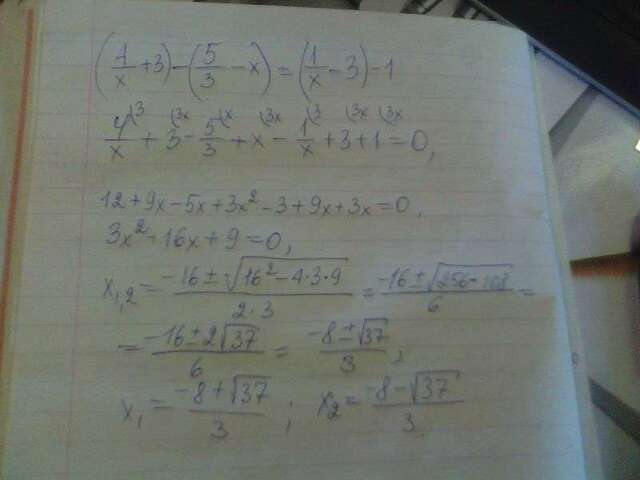 (4/x + 3) - (5/3 - x) = (1/x - 3) - 1
4\3/x + 3\3x - 5\x/3 + x\3x - 1\3/x + 3\3x + 1\3x = 0,
12 + 9x - 5x + 3x² - 3 + 9x + 3x = 0,
3x² + 16x + 9 = 0,
x₁,₂ = (-16 ± √(16² - 4·3·9))/(2·3) = (-16 ± √(256 - 108))/6 =
= (-16 ± 2√37)/6 = (-8 ± √37)/3 ;
x₁ = (-8 + √37)/3 ; x₂ = (-8 - √37)/3